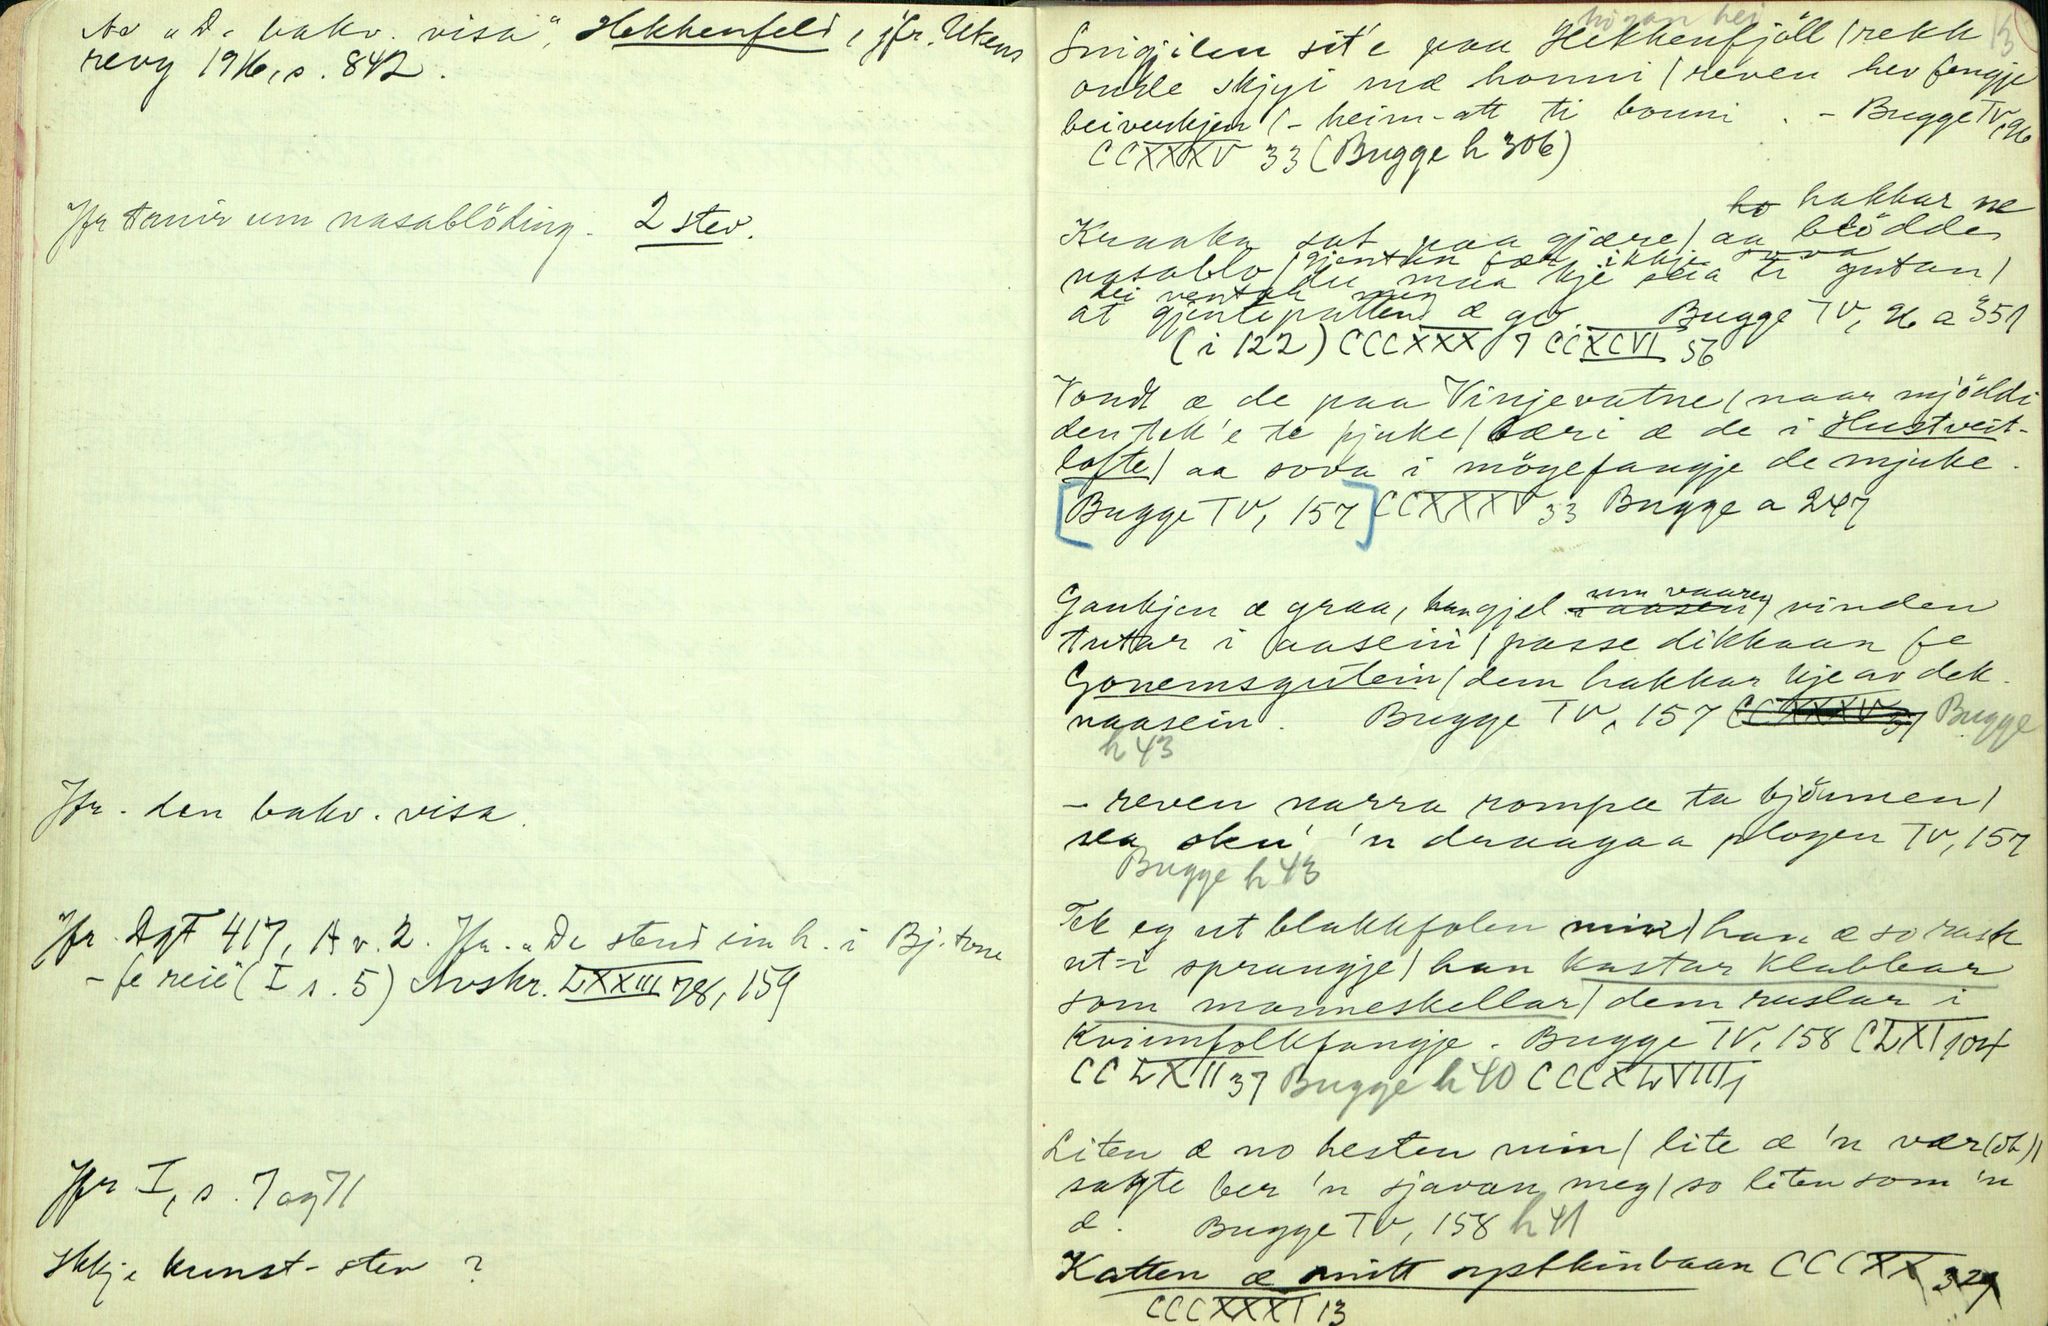 Av "D. bakv. visa", Hekkenfeld, jfr. Ukens
revy 1916, s. 842.
Jfr um nasablöding. 2 stev.
Jfr. den bakv. visa.
Jfr. DgF 417, A v. 2. Jfr. "De stend ein h. i Bj. tone
- fe reie" (I s. 5) Avskr. LXXIII 78, 159
Jfr I, s. 7 og 71
Ikkje kunst-stev ?
högan hei
Snigjilen sit'e paa Hekkenfjöll / rekk 13
onde skjyi mæ honni / reven hev fengje
beiverkjen / - heim-att ti bonni. - Bugge TV, 96
CCXXXV 33 (Bugge h 306)
ho hakkar ne
Kraaka sat paa gjære / aa blödde
nasablo / gjentun fær ikkje sova
du maa kje seia ti gutan /
dei ventar meg
at gjenteputten æ go Bugge TV, 96 a 351
(i 122) CCCXXX 7 CCXCVI 56
Vondt æ de paa Vinjevatne / naar mjölldi
den tek'e te fjuke / bæri æ de i Hustveit-
lofte / aa sova i möyefangje de mjuke.
[Bugge TV, 157] CCXXXV 33 Bugge a 247
Gaukjen æ graa, han gjel i aasen um vaaren / vinden
tutar i aasein / passe dikkaan fe
Gonemsgutein / dem hakkar kje av dek
naasein. Bugge TV, 157 CCXXXV 37 Bugge
h 43
- reven narra rompa ta bjönnen /
sea sku' 'n draaga a plogen TV, 157
Bugge h 43
Tek eg ut blakkfolen min / han æ so rask
ut-i sprangje / han kastar klabbar
som manneskellar / dem ruslar i
kvinnfolkfangje. Bugge TV, 158 CLXI 104
CCLXII 37 Bugge h 40 CCCXLVIII 1
Liten æ no hesten min / lite æ 'n vær (ot) /
sagte ber 'n sjavan meg / so liten som 'n
æ. Bugge TV, 158 h 41
Katten æ mitt nystkinbaan CCCXX 329
CCCXXXI 13